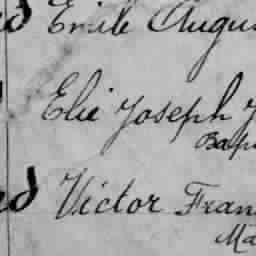 Emile Augu
Elie Joseph
Bap
Victor Fran
Ma